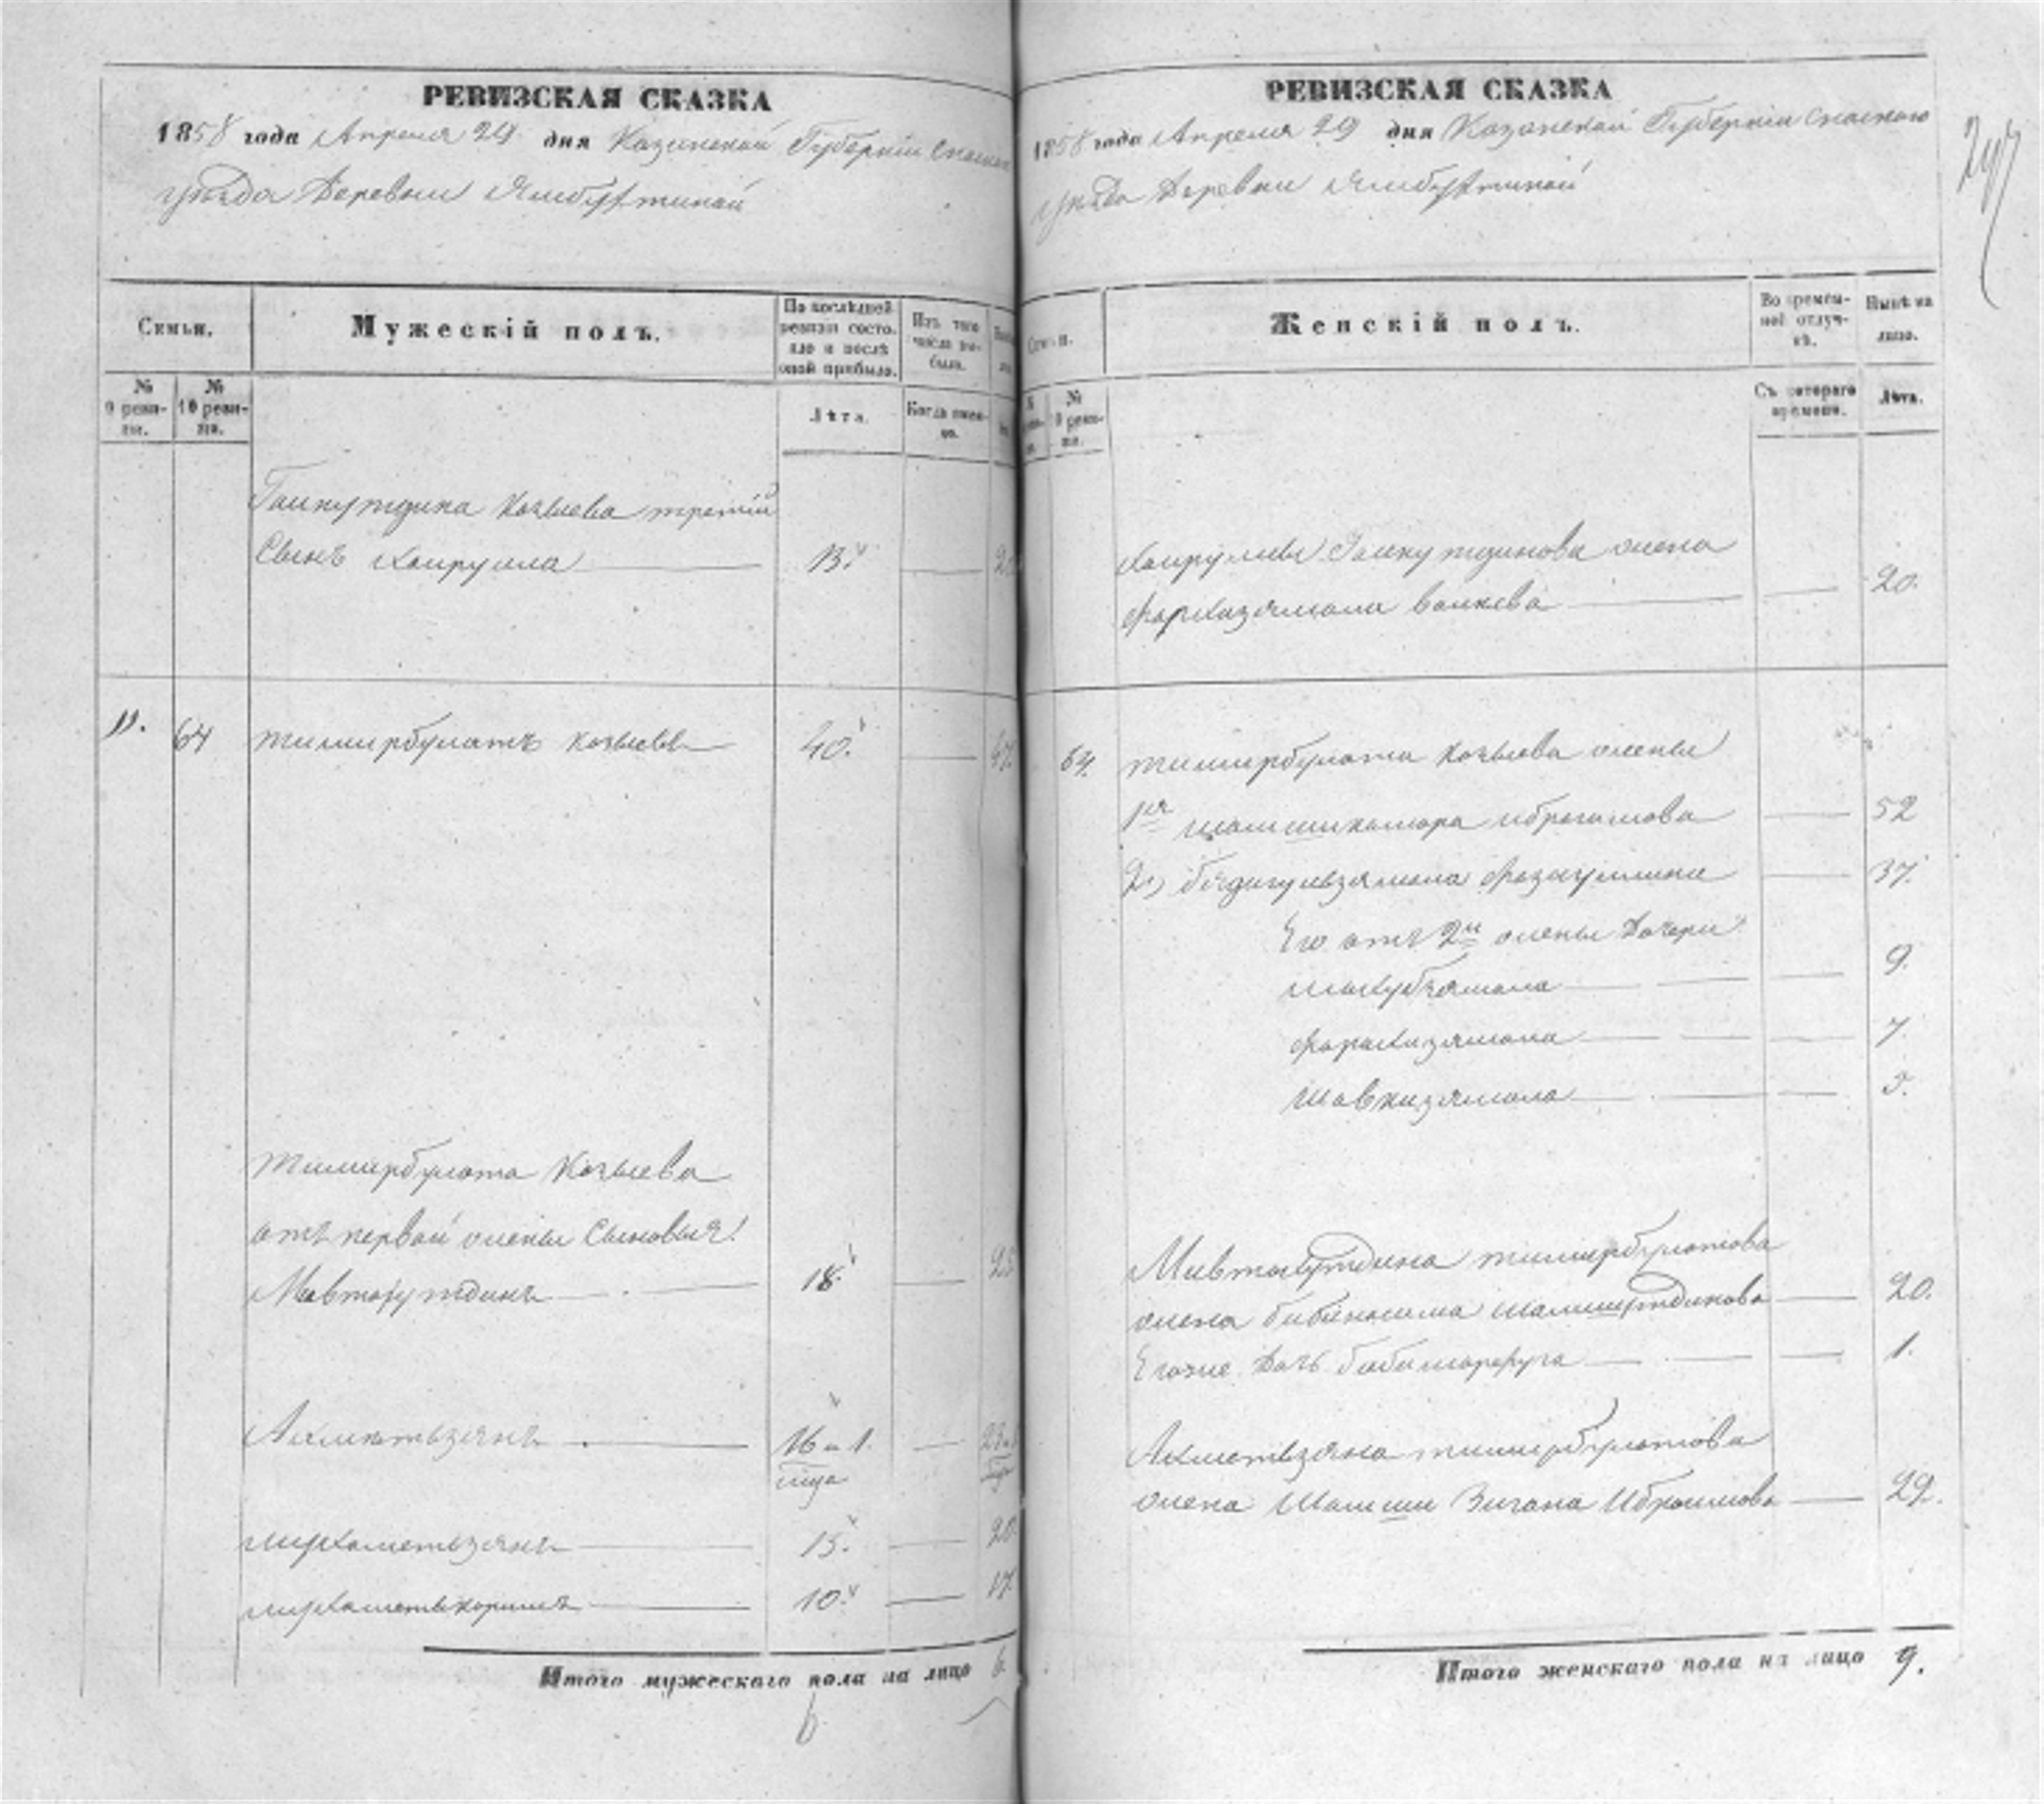 РЕВИЗСКАЯ СКАЗКА
1858 года Апреля 29 дня Казанской Губернии Спаскаго
уезда Деревни Ямбухтиной
Семьи.
Мужескій полъ.
По послѣдней ревизіи состояло и послѣ оной прибыло.
Изъ того числа выбыло.
№ 9 ревизіи.
№ 10 ревизіи.
Лѣта.
Когда именно.
Гайнутдина Козыева третій
Сынъ Хайрулла 13. 20
11. 64 Тимирбулатъ Козыевъ 40. 47.
Тимирбулата Козыева
отъ первой жены Сыновья:
Мифтахутдинъ 18. 25
Ахметьзянъ 16 и 1. 23
мца
Мухаметьзянъ 13. 20
Мухаметькаримъ 10. 17
Итого мужескаго пола на лицо 6.
6
РЕВИЗСКАЯ СКАЗКА
1858 года Апреля 29 дня Казанской Губерніи Спаскаго
уезда Деревни Ямбухтиной
297
Женскій полъ.
Во временной отлучкѣ.
Нынѣ на лицо.
№ 10 ревизіи.
Съ котораго времени.
Лѣта.
Хайруллы Гайнутдинова жена
Фархизямала 20.
64. Тимирбулата Козыева жены
1я Шамсикамара Ибрагимова 52
2, Бядигульзямала 37.
Его отъ 2й жены дочери:
9.
Фархизямала 7
Шавкизямала 5.
Мифтахутдина Тимирбулатова
жена Шамсутдинова 20.
Его же дочь 1.
Ахметьзяна Тимирбулатова
жена Шамси Зигана Ибраимова 22.
Итого женскаго пола на лицо 9.